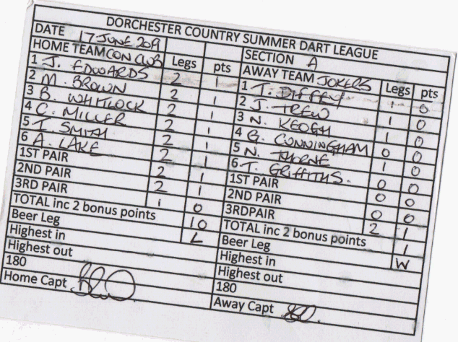 DORCHESTER COUNTRY SUMMER DART LEAGUE
DATE 17 JUNE SECTION A
HOME TEAM CON CLUB Legs pts AWAY TEAM JOKERS Legs pts
1 J. EDWARDS 2 1 1 T. DIFFEY 1 0
2 M. BROWN 2 1 2 J. TREW 1 0
3 B. WHITLOCK 2 1 3 N. KEOGH 1 0
4 C. MILLER 2 1 4 G. CUNNINGHAM 0 0
5 T. SMITH 2 1 5 N. THORNE
6 A. LAKE 2 1 6 T. GRIFFITHS.
1ST PAIR 2 1 1ST PAIR
2ND PAIR 2 1 2ND PAIR 0 0
3RD PAIR 1 0 3RDPAIR 2 1
TOTAL inc 2 bonus points 10 TOTAL inc 2 bonus points 1
Beer Leg L Beer Leg W
Highest in Highest in
Highest out Highest out
180 180
Home Capt Away Capt